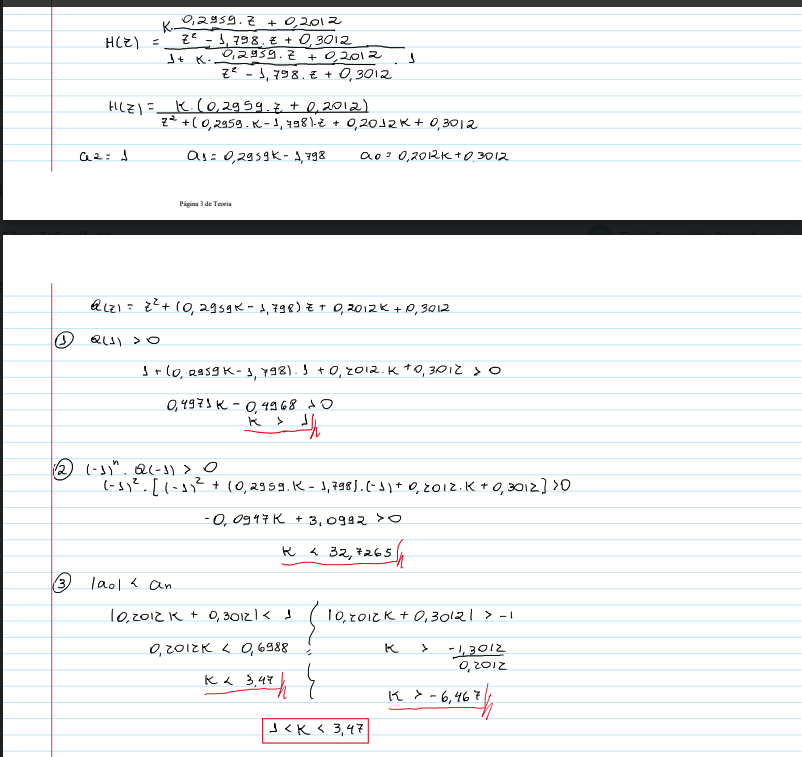 H(z) = K. 0,2959.z + 0,2012 / z² - 1,798.z + 0,3012
1 + K. 0,2959.z + 0,2012 / z² - 1,798.z + 0,3012 . 1
H(z) = K.(0,2959.z + 0,2012) / z² + (0,2959.K - 1,798).z + 0,2012K + 0,3012
a2 = 1 a1 = 0,2959K - 1,798 a0 = 0,2012K + 0,3012
Página 3 de Teoria
Q(z) = z² + (0,2959K - 1,798)z + 0,2012K + 0,3012
① Q(1) > 0
1 + (0,2959K - 1,798).1 + 0,2012.K + 0,3012 > 0
0,4971K - 0,4968 > 0
K > 1//
② (-1)ⁿ. Q(-1) > 0
(-1)². [(-1)² + (0,2959.K - 1,798).(-1) + 0,2012.K + 0,3012] > 0
-0,0947K + 3,0992 > 0
K < 32,7265//
③ |a0| < an
|0,2012K + 0,3012| < 1 |0,2012K + 0,3012| > -1
0,2012K < 0,6988 K > -1,3012 / 0,2012
K < 3,47// K > -6,467//
1 < K < 3,47